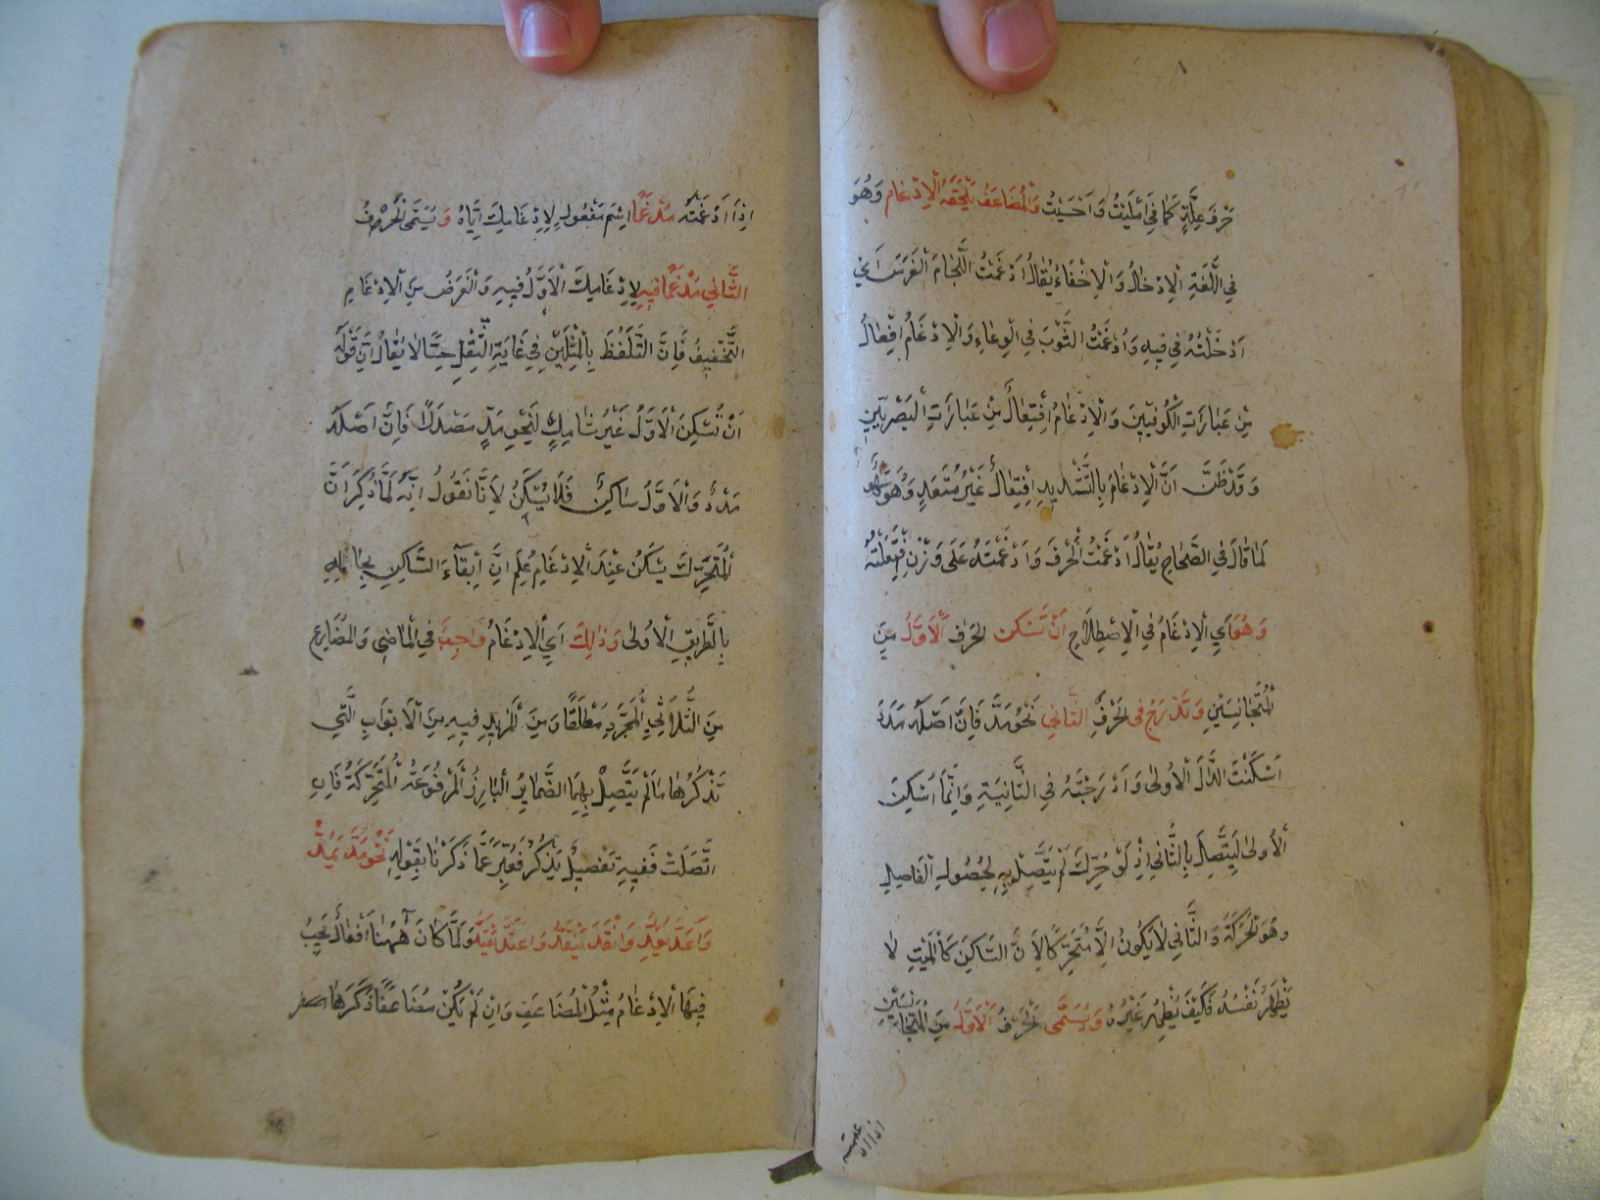 حَرْفَ عِلَّةٍ كَمَا فِي اَمْلَيْتُ وَاَحْسَيْتُ وَالْمُضَاعَفُ يَلْحَقُهُ الْاِدْغَام وَهُوَ
فِي اللُّغَةِ الْاِدْخَالُ وَالْاِخْفَاءُ يُقَالُ اَدْغَمْتُ اللِّجَامَ الْفَرَسَ اَيْ
اَدْخَلْتُهُ فِي فِيهِ وَاَدْغَمْتُ الثَّوْبَ فِي الْوِعَاءِ وَالْاِدْغَامُ اِفْعَالُ
مِنْ عِبَارَتِ الْكُوفِيِّينَ وَالْاِدِّغَامُ اِفْتِعَالٌ مِنْ عِبَارَتِ الْبَصْرِيِّينَ
وَقَدْ ظَنَّ اَنَّ الْاِدِّغَامَ بِالتَّشْدِيدِ اِفْتِعَالٌ غَيْرُ مُتَعَدٍ وَهُوَ سَهْوٌ
لِمَا قَالَ فِي الصِّحَاحِ يُقَالُ اَدْغَمْتُ الْحَرْفَ وَادَّغَمْتَهُ عَلَى وَزْنِ افْتَعَلْتُهُ
وَهُوَ اَيِ الْاِدْغَامُ فِي الْاِصْطِلَاحِ اَنْ تُسَكِّنَ الْحَرْفَ الْاَوَّلَ مِنَ
الْمُتَجَانِسَيْنِ وَتُدْرِجَ فِي الْحَرْفِ الثَّانِي نَحْوُ مَدَّ فَاِنَّ اَصْلَهُ مَدَدَ
اَسْكَنْتَ الدَّالَ الْاُولَى وَاَدْرَجْتَهُ فِي الثَّانِيَةِ وَاِنَّمَا اُسْكِنَ
الْاُولَى لِيَتَّصِلَ بِالثَّانِي اِذْ لَوْ حُرِّكَ لَمْ يَتَّصِلْ بِهِ لِحُصُولِ الْفَاصِلِ
وَهُوَ الْحَرَكَةُ وَالثَّانِي لَا يَكُونُ اِلَّا مُتَحَرِّكًا لِاَنَّ السَّاكِنَ كَالْمَيِّتِ لَا
يُظْهِرُ نَفْسَهُ فَكَيْفَ يُظْهِرُ غَيْرَهُ وَيُسَمَّى الْحَرْفُ الْاَوَّلُ مِنَ الْمُتَجَانِسَيْنِ
اِذَا اَدْغَمْتَهُ مُدْغَمًا اِسْمَ مَفْعُولٍ لِاِدْغَامِكَ اِيَّاهُ وَيُسَمَّى الْحَرْفُ
الثَّانِي مُدْغَمًا فِيهِ لِاِدْغَامِكَ الْاَوَّلَ فِيهِ وَالْغَرَضُ مِنَ الْاِدْغَامِ
التَّخْفِيفُ فَاِنَّ التَّلَفُّظَ بِالْمِثْلَيْنِ فِي غَايَةِ الثِّقَلِ حِسًّا لَا يُقَالُ اِنَّ قَوْلَهُ
اَنْ تُسَكِّنَ الْاَوَّلَ غَيْرُ شَامِلٍ لِنَحْوِ مَدٍّ مَصْدَرًا فَاِنَّ اَصْلَهُ
مَدْدٌ وَالْاَوَّلُ سَاكِنٌ فَلَا يُسَكَّنُ لِاَنَّا نَقُولُ اِنَّهُ لَمَّا ذُكِرَ اَنَّ
الْمُتَحَرِّكَ يُسَكَّنُ عِنْدَ الْاِدْغَامِ عُلِمَ اَنَّ اِبْقَاءَ السَّاكِنِ بِحَالِهِ
بِالطَّرِيقِ الْاُولَى وَذَلِكَ اَيِ الْاِدْغَامُ وَاجِبٌ فِي الْمَاضِي وَالْمُضَارِعِ
مِنَ الثُّلَاثِي الْمُجَرَّدِ مُطْلَقًا وَمِنَ الْمَزِيدِ فِيهِ مِنَ الْاَبْوَابِ الَّتِي
تَذْكُرُهَا مَا لَمْ يَتَّصِلْ بِهِمَا الضَّمَايِرُ الْبَارِزُ الْمَرْفُوعَةُ الْمُتَحَرِّكَةُ فَاِنِ
اتَّصَلَتْ فَفِيهِ تَفْصِيلٌ يُذْكَرُ فَعَبَّرَ عَمَّا ذَكَرْنَا بِقَوْلِهِ نَحْوُ مَدَّ يَمُدُّ
وَاَعَدَّ يُعِدُّ وَانْقَدَّ يَنْقَدُّ وَاعْتَدَّ يَعْتَدُّ وَلَمَّا كَانَ هٰهُنَا اَفْعَالٌ يَجِبُ
فِيهَا الْاِدْغَامُ مِثْلُ الْمُضَاعَفِ وَاِنْ لَمْ يَكُنْ مُضَاعَفًا ذَكَرَهَا